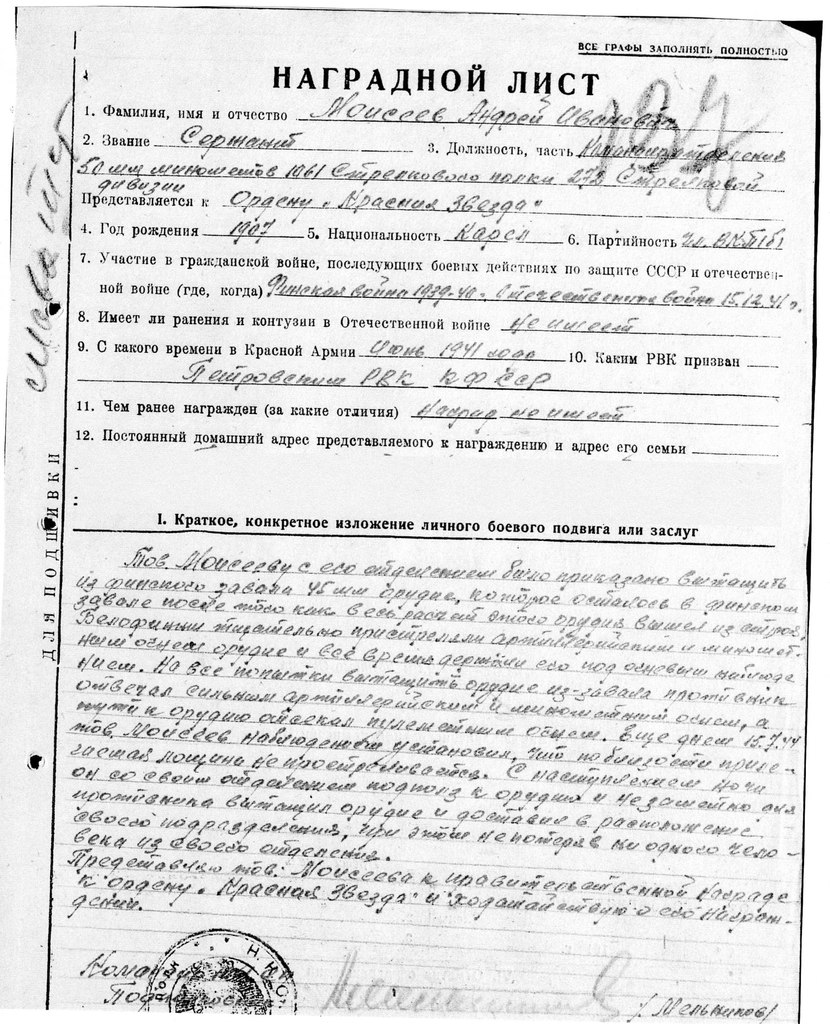 ВСЕ ГРАФЫ ЗАПОЛНЯТЬ ПОЛНОСТЬЮ
НАГРАДНОЙ ЛИСТ
1. Фамилия, имя и отчество Моисеев Андрей Иванович
2. Звание Сержант 3. Должность, часть Командир отделения
50 мм минометов 1061 Стрелкового полка 272 Стрелковой
дивизии
Представляется к Ордену "Красная Звезда"
4. Год рождения 1907 5. Национальность Карел 6. Партийность Чл. ВКП(б)
7. Участие в гражданской войне, последующих боевых действиях по защите СССР и отечествен-
ной войне (где, когда) Финская война 1939-40 - Отечественная война 15.12.41 г.
8. Имеет ли ранения и контузии в Отечественной войне Не имеет
9. С какого времени в Красной Армии Июнь 1941 года 10. Каким РВК призван
Петровским РВК КФССР
11. Чем ранее награжден (за какие отличия) Наград не имеет
12. Постоянный домашний адрес представляемого к награждению и адрес его семьи
ДЛЯ ПОДШИВКИ
I. Краткое, конкретное изложение личного боевого подвига или заслуг
Тов. Моисееву с его отделением было приказано вытащить
из финского завала 45 мм орудие, которое осталось в финском
завале после того как весь расчет этого орудия вышел из строя.
Белофинны тщательно пристреляли артиллерийским и миномет-
ным огнем орудие и всё время держали его под огневым наблюде-
нием. На все попытки вытащить орудие из-завала противник
отвечал сильным артиллерийским и минометным огнем, а
пути к орудию отсекал пулеметным огнем. Еще днем 15.7.44
тов. Моисеев наблюдением установил, что поблизости приле-
гаемая лощина не простреливается. С наступлением ночи
он со своим отделением подполз к орудию и незаметно для
противника вытащил орудие и доставил в расположение
своего подразделения, при этом не потеряв ни одного чело-
века из своего отделения.
Представляю тов. Моисеева к правительственной награде
к ордену "Красная Звезда" и ходатайствую о его награж-
дении.
/Мельников/